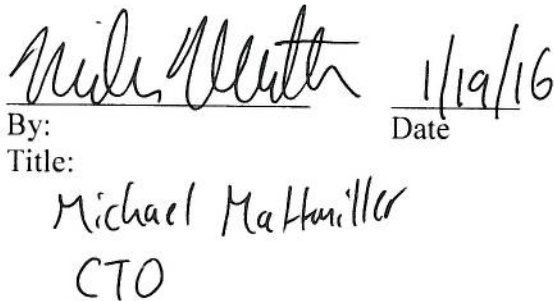 1/19/16
By: Date
Title:
Michael Mattmiller
CTO